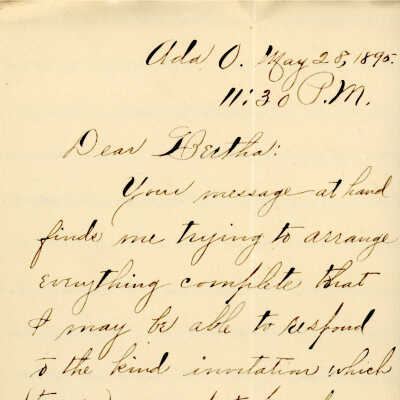 Ada O. May 28, 1895.
11:30 P.M.
Dear Bertha:
Your message at hand
finds me trying to arrange
everything complete that
I may be able to respond
to the kind invitation which